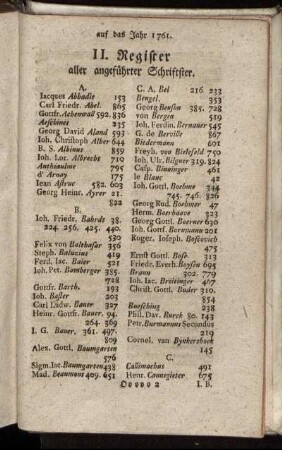 auf das Jahr 1761.
II. Register
aller angeführter Schriftster.
A.
Jacques Abbadie 153
Carl Friedr. Abel. 865
Gottfr. Achenwall 592. 836
Aeschines 235
Georg David Aland 593
Joh. Christoph Alber 644
B. S. Albinus 859
Joh. Lor. Albrecht 719
Anthionine 795
d' Arnay 175
Jean Astruc 582. 603
Georg Heinr. Ayrer 21.
822
B.
Joh. Friedr. Bahrdt 38.
224. 256. 425. 440.
530
Felix von Balthasar 356
Steph. Baluzius 419
Ferd. Jac. Baier 521
Joh. Pet. Bamberger 385.
728
Gottfr. Barth. 193
Joh. Basler 203
Carl Ludw. Bauer 327
Heinr. Gottfr. Bauer. 94.
264. 369
J. G. Bauer. 361. 497.
809
Alex. Gottl. Baumgarten
576
Sigm. Jac. Baumgarten 438
Mad. Beaumont 409. 651
C. A. Bel 216. 233
Bengel. 353
Georg Benson 385. 728
von Bergen 519
Joh. Ferdin. Bernauer 545
G. de Berville 867
Biedermann 601
Freyh. von Bielefeld 750
Joh. Ulr. Bilguer 319. 824
Casp. Binninger 461
le Blanc 42
Joh. Gottl. Boehme 344
745. 746. 826
Georg Rud. Boehmer 47
Herm. Boerhaave 323
Georg Gottl. Boerner 630
Joh. Gottf. Bormann 201
Roger. Joseph. Boscovich
475
Ernst Gottl. Bose. 313
Friedr. Everh. Boysen 695
Braun 302. 779
Joh. Jac. Breitinger 467
Christ. Gottl. Buder 310.
854
Buesching 238
Phil. Dav. Burck 80. 143
Petr. Burmannus Secundus
219
Cornel. van Bynkershoek
145
C.
Callimachus 491
Henr. Cannegieter 675
O o o o o 2 J. B.